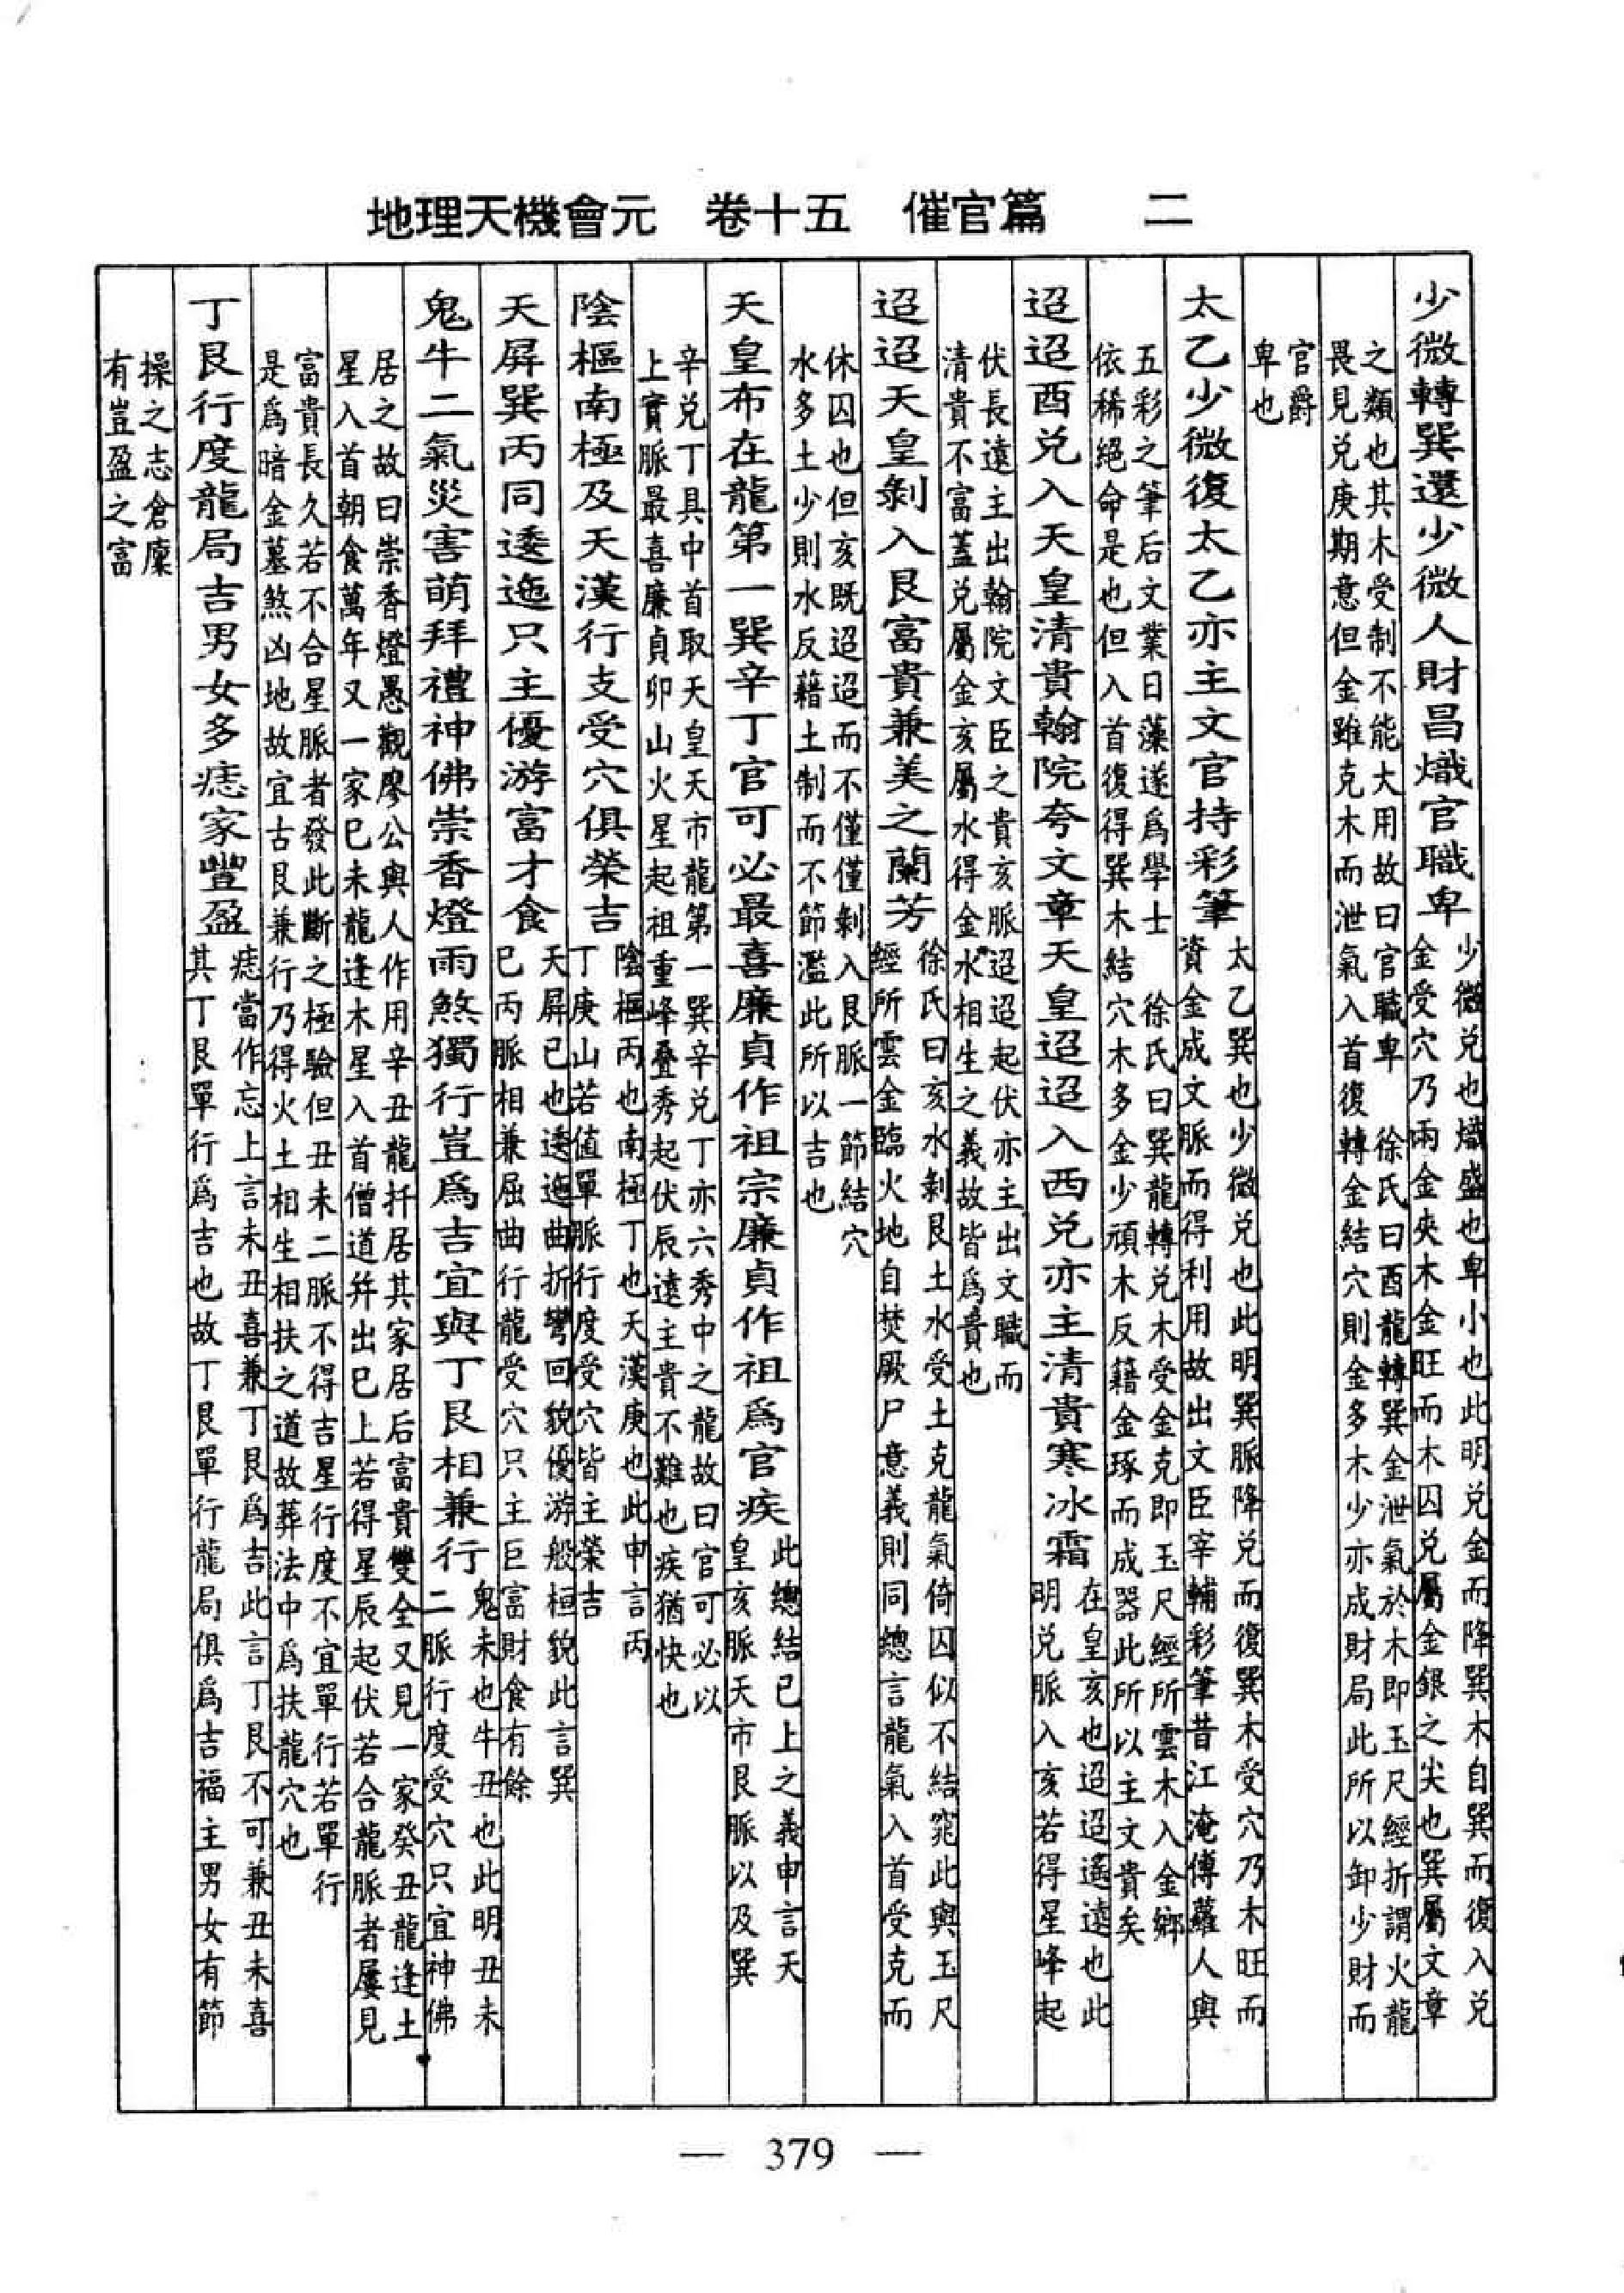 地理天機會元　卷十五　催官篇　二
少微轉巽還少微人財昌熾官職卑
少微兑也熾盛也卑小也此明兑金而降巽木自巽而復入兑
金受穴乃兩金夾木金旺而木囚兑屬金銀之尖也巽屬文章
之類也其木受制不能大用故曰官職卑　徐氏曰酉龍轉巽金泄氣於木即玉尺經折謂火龍
畏見兑庚期意但金雖克木而泄氣入首復轉金結穴則金多木少亦成財局此所以卸少財而
官爵
卑也
太乙少微復太乙亦主文官持彩筆
太乙巽也少微兑也此明巽脈降兑而復巽木受穴乃木旺而
資金成文脈而得利用故出文臣宰輔彩筆昔江淹傅蘿人與
五彩之筆后文業日藻遂爲學士　徐氏曰巽龍轉兑木受金克即玉尺經所雲木入金鄉
依稀絕命是也但入首復得巽木結穴木多金少頑木反藉金琢而成器此所以主文貴矣
迢迢酉兑入天皇清貴翰院夸文章天皇迢迢入西兑亦主清貴寒冰霜
在皇亥也迢迢遙遠也此
明兑脈入亥若得星峰起
伏長遠主出翰院文臣之貴亥脈迢迢起伏亦主出文職而
清貴不富蓋兑屬金亥屬水得金水相生之義故皆爲貴也
迢迢天皇剝入艮富貴兼美之蘭芳
徐氏曰亥水剝艮土水受土克龍氣倚囚似不結窕此與玉尺
經所雲金臨火地自焚厥尸意義則同總言龍氣入首受克而
休囚也但亥既迢迢而不僅僅剝入艮脈一節結穴
水多土少則水反藉土制而不節濫此所以吉也
天皇布在龍第一巽辛丁官可必最喜廉貞作祖宗廉貞作祖爲官疾
此總結已上之義申言天
皇亥脈天市艮脈以及巽
辛兑丁具中首取天皇天市龍第一巽辛兑丁亦六秀中之龍故曰官可必以
上實脈最喜廉貞卯山火星起祖重峰叠秀起伏辰遠主貴不難也疾猶快也
陰樞南極及天漢行支受穴俱榮吉
陰樞丙也南極丁也天漢庚也此申言丙
丁庚山若值單脈行度受穴皆主榮吉
天屏巽丙同逶迤只主優游富才食
天屏巳也逶迤曲折彎回貌優游般桓貌此言巽
巳丙脈相兼屈曲行龍受穴只主巨富財食有餘
鬼牛二氣災害萌拜禮神佛崇香燈雨煞獨行豈爲吉宜與丁艮相兼行
鬼未也牛丑也此明丑未
二脈行度受穴只宜神佛
居之故曰崇香燈愚觀廖公與人作用辛丑龍扦居其家居后富貴雙全又見一家癸丑龍逢土
星入首朝食萬年又一家巳未龍逢木星入首僧道幷出巳上若得星辰起伏若合龍脈者屢見
富貴長久若不合星脈者發此斷之極驗但丑未二脈不得吉星行度不宜單行若單行
是爲暗金墓煞凶地故宜古艮兼行乃得火土相生相扶之道故葬法中爲扶龍穴也
丁艮行度龍局吉男女多痣家豐盈
痣當作忘上言未丑喜兼丁艮爲吉此言丁艮不可兼丑未喜
其丁艮單行爲吉也故丁艮單行龍局俱爲吉福主男女有節
操之志倉廩
有豈盈之富
— 379 —